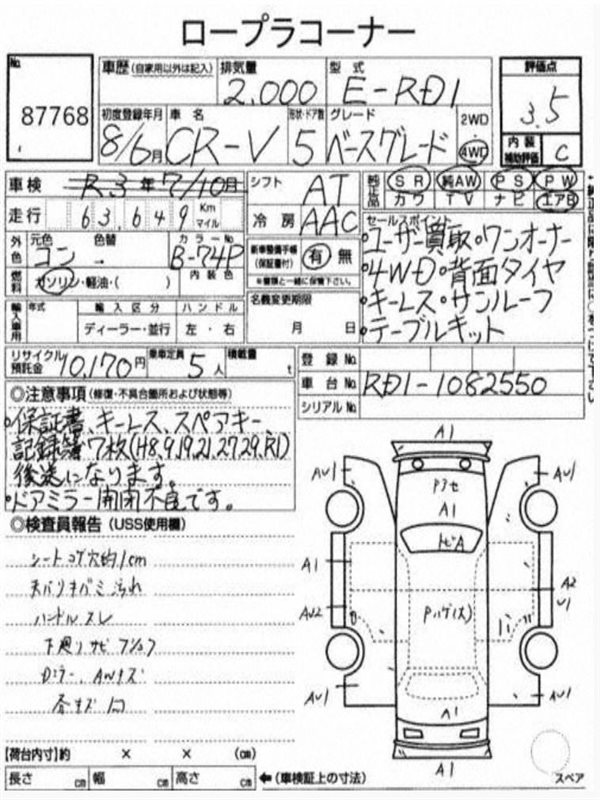 ロープラコーナー
No. 87768
車歴 (自家用以外は記入) 排気量 2.000 型式 E-RD1 評価点 3.5
初度登録年月 8/6月 車名 CR-V 形状・ドア数 5 グレード ベースグレード 2WD 4WD 内装補助評価 C
車検 R3年7/10月 シフト AT 純正品 SR 純AW PS PW
カワ TV ナビ エアB
走行 63,649 Km マイル 冷房 AAC
外色 元色 コン 色替 カラーNo. B-74P
燃料 ガソリン・軽油・( ) 内装色
新車整備手帳 (保証書付) 有 無
※書類と一緒に保管下さい。
セールスポイント
・ユーザー買取・ワンオーナー
・4WD・背面タイヤ
・キーレス・サンルーフ
・テーブルキット
輸入車用 年式 輸入区分 ハンドル
ディーラー・並行 左・右
名義変更期限
月 日
リサイクル預託金 10,170円 乗車定員 5人 積載量 t
登録No.
車台No. RD1-1082550
シリアルNo.
◎注意事項 (修復・不具合箇所および状態等)
・保証書、キーレス、スペアキー、
記録簿7枚(H8,9,19,21,27,29,R1)
後送になります。
・ドアミラー開閉不良です。
◎検査員報告 (USS使用欄)
シートコゲ穴的1cm
汚れ
ハンドルスレ
下廻りサビ
Dミラー、AWキズ
A1
AU1 AU1
Pアセ
A1
トビA
A1 A2
U1
AU2
Pハゲ(大)
AU1 AU1
A1
A1
スペア
【荷台内寸】約 × × (cm)
長さ cm 幅 cm 高さ cm ←(車検証上の寸法)